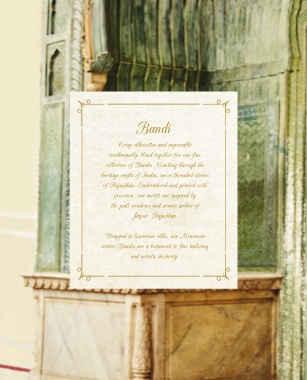 Bandi
Crisp silhouettes and impeccable
workmanship blend together for our fine
collection of Bandis. Combing through the
heritage crafts of India, we've threaded stories
of Rajasthan. Embroidered and printed with
precision, our motifs are inspired by
the jaali windows and ornate arches of
Jaipur, Rajasthan.
Wrapped in luxurious silks, our
winter Bandis are a testament to fine tailoring
and artistic dexterity.